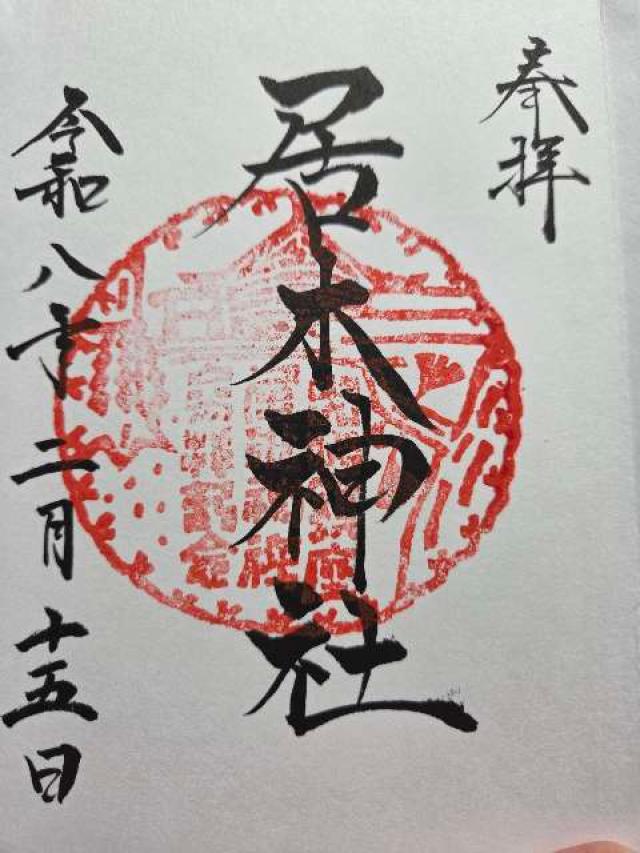 奉拝
居木神社
令和八年二月十五日